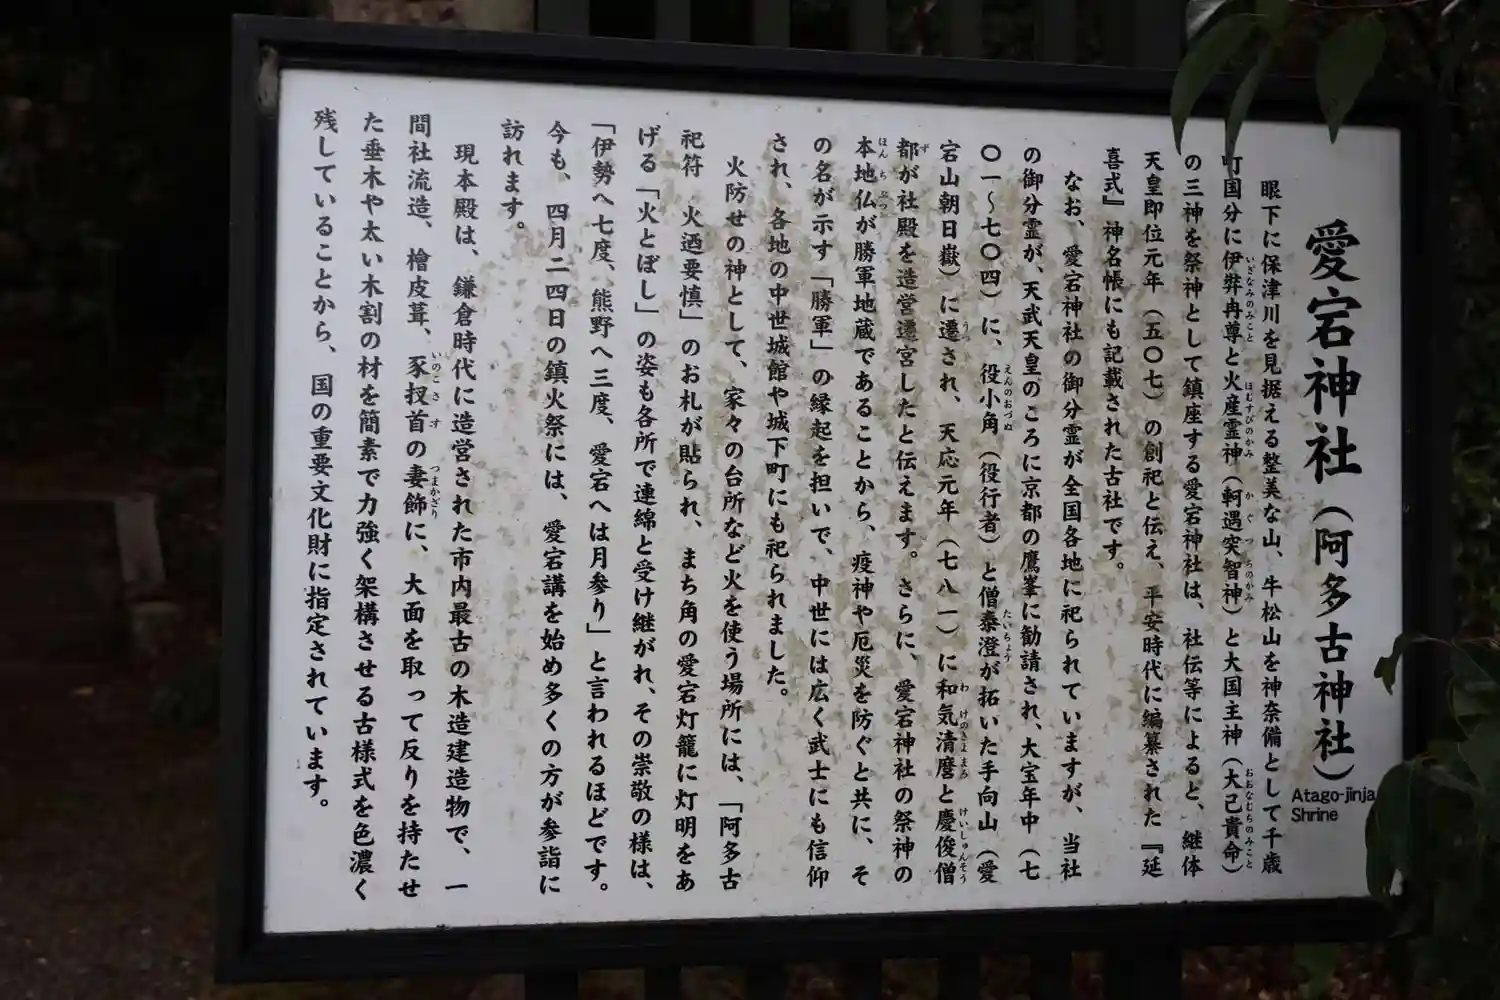 愛宕神社(阿多古神社)
Atago-jinja
Shrine
眼下に保津川を見据える整美な山、牛松山を神奈備として千歳
町国分に伊弉冉尊と火産霊神(軻遇突智神)と大国主神(大己貴命)
いざなみのみこと ほむすびのかみ かぐつちのかみ おおなむちのみこと
の三神を祭神として鎮座する愛宕神社は、社伝等によると、継体
天皇即位元年(五〇七)の創祀と伝え、平安時代に編纂された『延
喜式』神名帳にも記載された古社です。
なお、愛宕神社の御分霊が全国各地に祀られていますが、当社
の御分霊が、天武天皇のころに京都の鷹峯に勧請され、大宝年中(七
〇一～七〇四)に、役小角(役行者)と僧泰澄が拓いた手向山(愛
えんのおづぬ たいちょう
宕山朝日嶽)に遷され、天応元年(七八一)に和気清麿と慶俊僧
うつ わけのきよまろ けいしゅんそう
都が社殿を造営遷宮したと伝えます。さらに、愛宕神社の祭神の
ず
本地仏が勝軍地蔵であることから、疫神や厄災を防ぐと共に、そ
ほんちぶつ
の名が示す「勝軍」の縁起を担いで、中世には広く武士にも信仰
され、各地の中世城館や城下町にも祀られました。
火防せの神として、家々の台所など火を使う場所には、「阿多古
祀符 火迺要慎」のお札が貼られ、まち角の愛宕灯籠に灯明をあ
げる「火とぼし」の姿も各所で連綿と受け継がれ、その崇敬の様は、
「伊勢へ七度、熊野へ三度、愛宕へは月参り」と言われるほどです。
今も、四月二四日の鎮火祭には、愛宕講を始め多くの方が参詣に
訪れます。
現本殿は、鎌倉時代に造営された市内最古の木造建造物で、一
間社流造、檜皮葺、豕扠首の妻飾に、大面を取って反りを持たせ
いのこさす つまかざり
た垂木や太い木割の材を簡素で力強く架構させる古様式を色濃く
残していることから、国の重要文化財に指定されています。